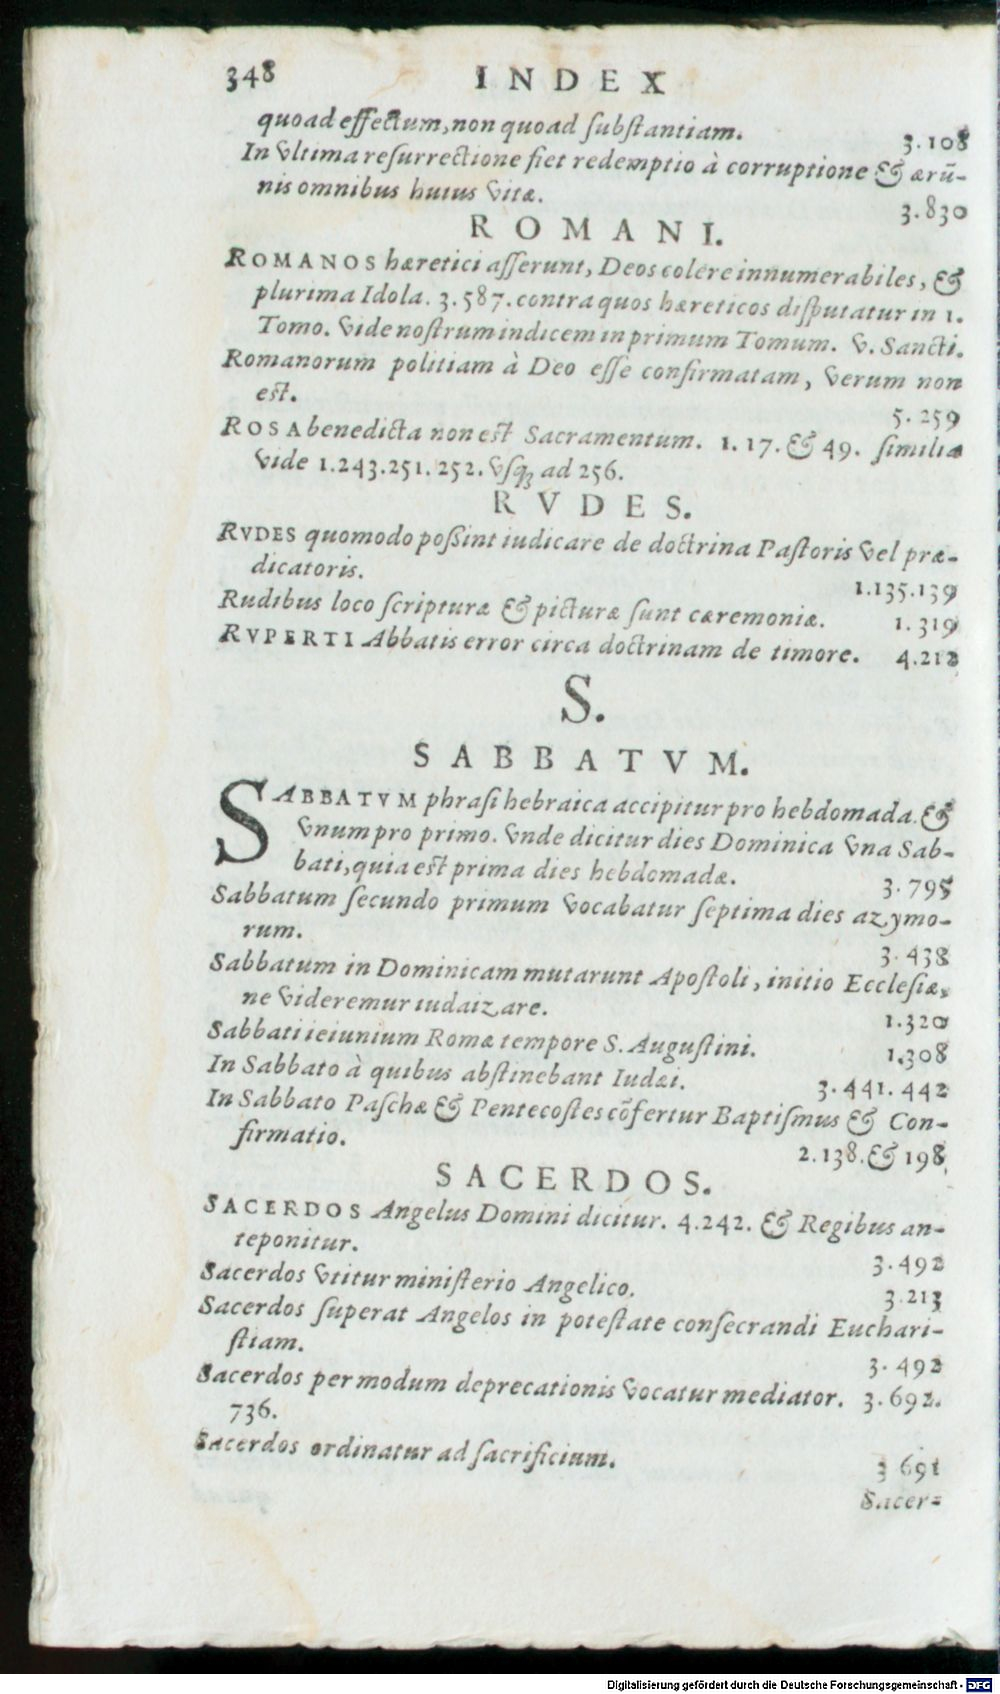 348 INDEX
quoad effectum, non quoad ſubſtantiam. 3.108
In vltima reſurrectione fiet redemptio à corruptione & ærū-
nis omnibus huius vitæ. 3.830
ROMANI.
ROMANOS hæretici aſſerunt, Deos colere innumerabiles, &
plurima Idola. 3.587. contra quos hæreticos diſputatur in 1.
Tomo. vide noſtrum indicem in primum Tomum. v. Sancti.
Romanorum politiam à Deo eſſe confirmatam, verum non
est. 5.259
ROSA benedicta non est Sacramentum. 1.17. & 49. ſimilia
vide 1.243.251.252. vſq; ad 256.
RVDES.
RVDES quomodo poſſint iudicare de doctrina Paſtoris vel præ-
dicatoris. 1.135.139
Rudibus loco ſcripturæ & picturæ ſunt cæremoniæ. 1.319
RVPERTI Abbatis error circa doctrinam de timore. 4.212
S.
SABBATVM.
SABBATVM phraſi hebraica accipitur pro hebdomada. &
vnum pro primo. vnde dicitur dies Dominica vna Sab-
bati, quia est prima dies hebdomadæ. 3.795
Sabbatum ſecundo primum vocabatur ſeptima dies azymo-
rum. 3.438
Sabbatum in Dominicam mutarunt Apoſtoli, initio Eccleſiæ,
ne videremur iudaizare. 1.320
Sabbati ieiunium Romæ tempore S. Auguſtini. 1.308
In Sabbato à quibus abſtinebant Iudæi. 3.441.442
In Sabbato Paſchæ & Pentecoſtes cōfertur Baptiſmus & Con-
firmatio. 2.138. & 198
SACERDOS.
SACERDOS Angelus Domini dicitur. 4.242. & Regibus an-
teponitur. 3.492
Sacerdos vtitur miniſterio Angelico. 3.213
Sacerdos ſuperat Angelos in poteſtate conſecrandi Euchari-
ſtiam. 3.492
Sacerdos per modum deprecationis vocatur mediator. 3.692.
736.
Sacerdos ordinatur ad ſacrificium. 3 691
Sacer-
Digitalisierung gefördert durch die Deutsche Forschungsgemeinschaft - DFG